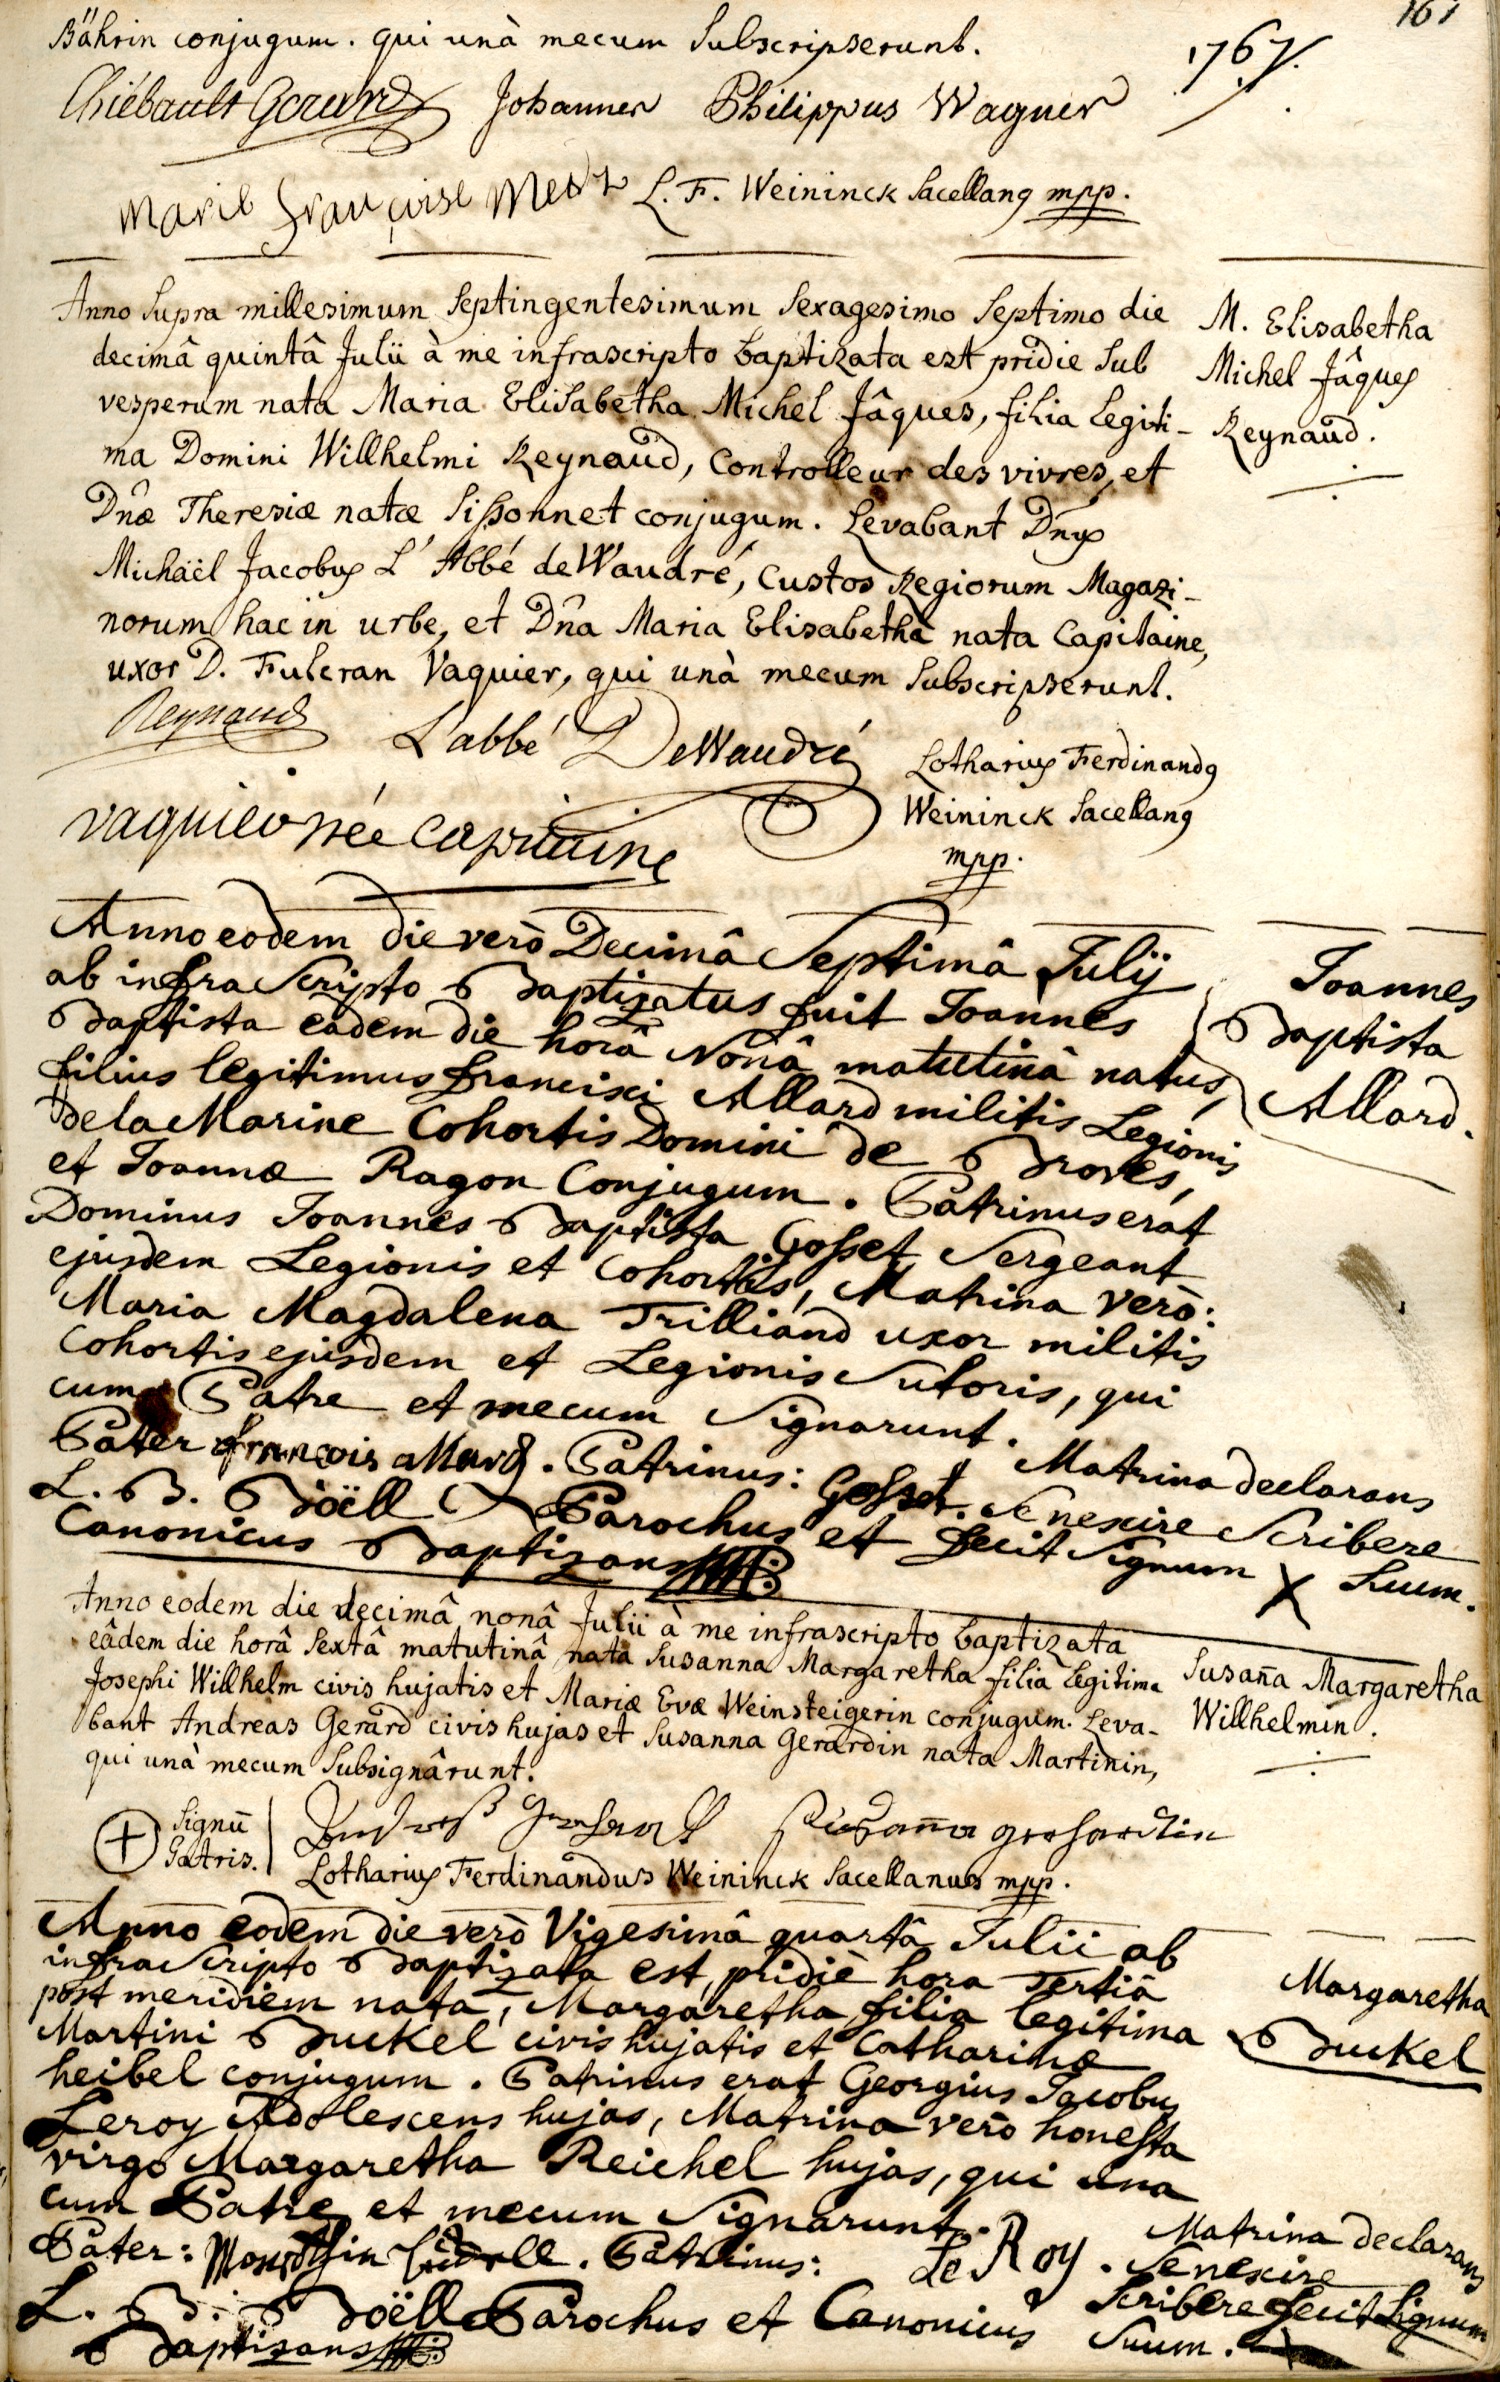 161
1767.
Bährin conjugum. qui unà mecum Subscripserunt.
Thiébault Johannes Philippus Wagner
Marie françoise L. F. Weininck Sacellang mpp.
Anno Supra millesimum Septingentesimum Sexagesimo Septimo die
decimâ quintâ Julii à me infrascripto baptizata est pridie Sub
vesperum nata Maria Elisabetha Michel Jâques, filia Legiti-
ma Domini Willhelmi Reynaud, Controlleur des vivres, et
Dnæ Theresiæ natæ Sissonnet conjugum. Levabant Dnus
Michaël Jacobus L'Abbé de Waudré, Custos Regiorum Magazi-
norum hac in urbe, et Dna Maria Elisabetha nata Capitaine,
uxor D. Fulcran Vaquier, qui unà mecum Subscripserunt.
M. Elisabetha
Michel Jâques
Reynaud.
Reynaud L'abbé DeWaudré
vaquier née Capitaine
Lotharius Ferdinandg
Weininck Sacellang
mpp.
Anno eodem die verò Decimâ Septimâ Julij
ab infra Scripto Baptizatus fuit Joannes
Baptista eadem die horâ Nonâ matutinâ natus,
filius legitimus francisci Allard militis Legionis
de la Marine Cohortis Domini de Broves,
et Joannæ Ragon Conjugum. Patrinus erat
Dominus Joannes Baptista Gosset, Sergeant
ejusdem Legionis et Cohortis, Matrina verò:
Maria Magdalena Trilliand uxor militis
Cohortis ejusdem et Legionis Sutoris, qui
cum Patre et mecum Signarunt.
Joannes
Baptista
Allard.
Pater françois allard. Patrinus: Gosset. Matrina declarans
L. B. Boëll Parochus et Se nescire Scribere
Canonicus Baptizans fecit Signum X Suum.
Anno eodem die decimâ nonâ Julii à me infrascripto baptizata
eâdem die horâ Sextâ matutinâ nata Susanna Margaretha filia Legitima
Josephi Willhelm civis hujatis et Mariæ Evæ Weinsteigerin conjugum. Leva-
bant Andreas Gerard civis hujas et Susanna Gerardin nata Martinin,
qui unà mecum Subsignârunt.
Susaña Margaretha
Willhelmin.
Signũ
Patris.
Susanna gerhardtin
Lotharius Ferdinandus Weininck Sacellanus mpp.
Anno eodem die verò Vigesimâ quartâ Julii ab
infra Scripto Baptizata est, pridiè hora Tertiâ
post meridiem nata, Margaretha filia legitima
Martini Buckel civis hujatis et Catharinæ
heibel conjugum. Patrinus erat Georgius Jacobus
Leroy Adolescens hujas, Matrina verò honesta
virgo Margaretha Reichel hujas, qui una
cum Patre et mecum Signarunt.
Margaretha
Buckel
Pater: Patrinus: Le Roy. Matrina declarans
Se nescire
Scribere fecit Signum
Suum.
L. B. Boëll Parochus et Canonicus
Baptizans